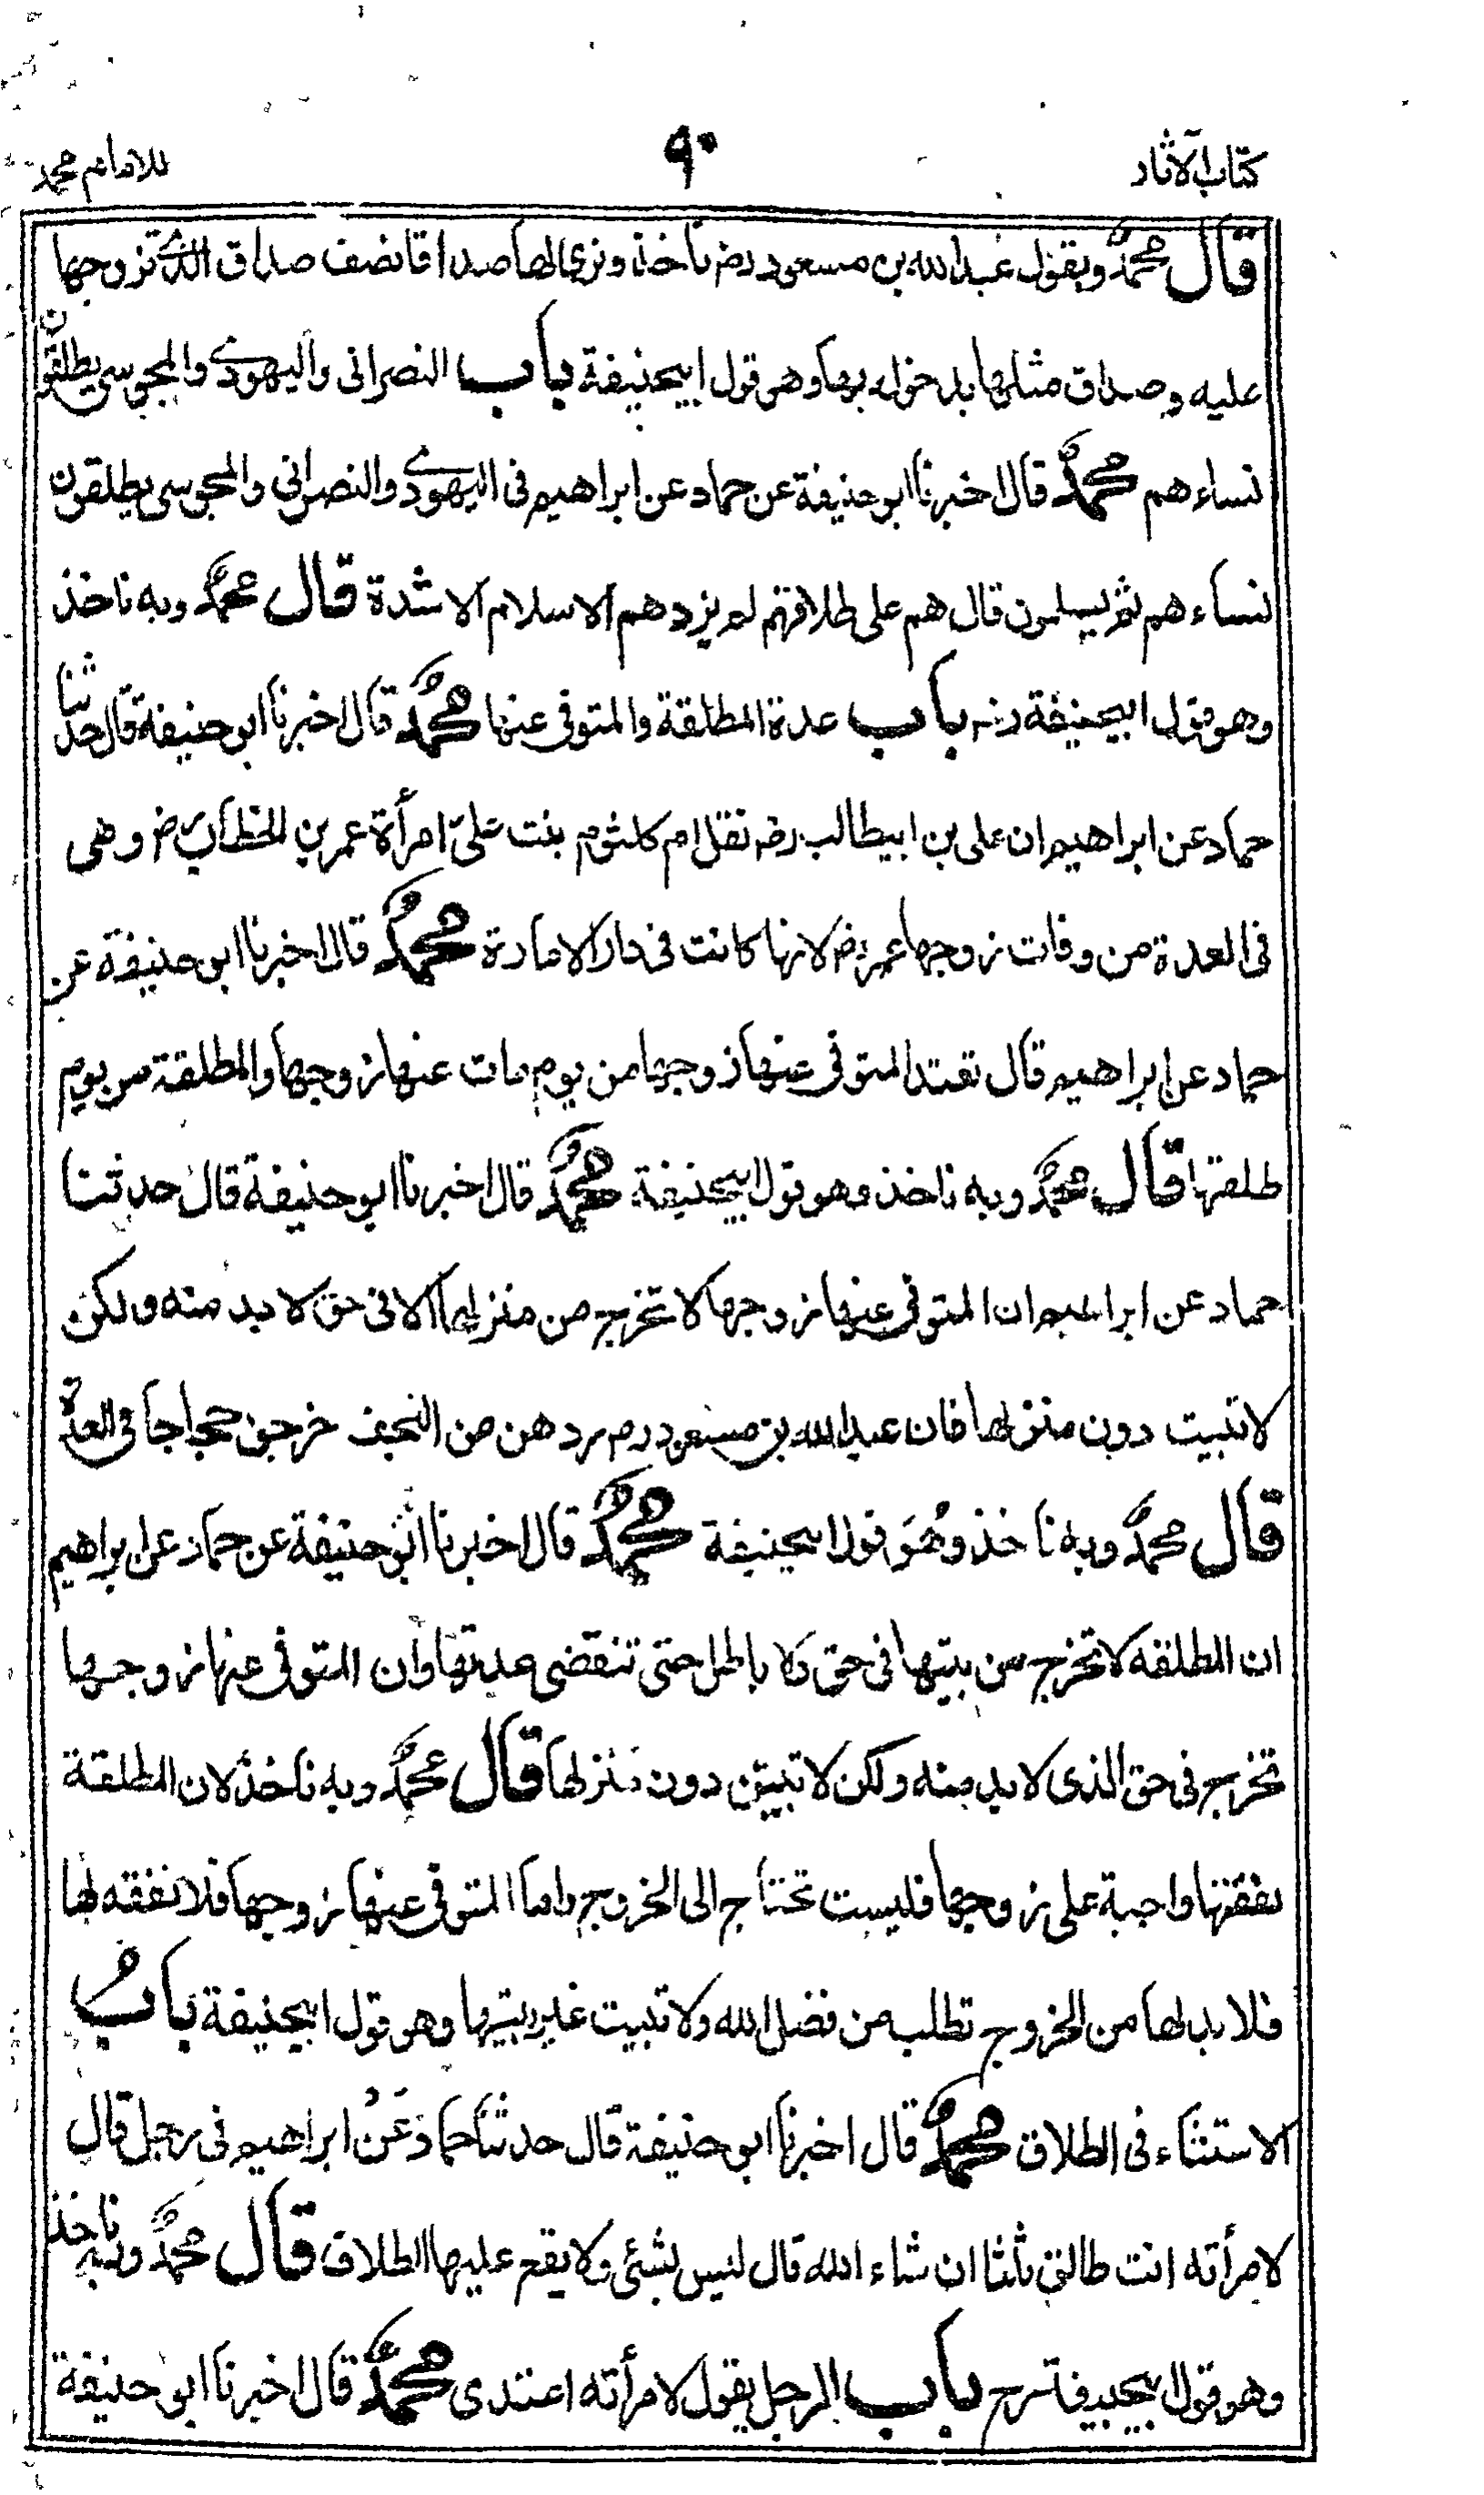 كتاب الآثار
٩٠
للامام محمد
قال محمد وبقول عبد الله بن مسعود رضه ناخذ ونرى لها صداقا نصف صداق الذى تزوجها
عليه وصداق مثلها بدخوله بها وهو قول ابيحنيفة باب النصرانى واليهودى والمجوسى يطلقون
نساءهم محمد قال اخبرنا ابو حنيفة عن حماد عن ابراهيم فى اليهودى والنصرانى والمجوسى يطلقون
نساءهم ثم يسلمون قال هم على طلاقهم لم يزدهم الاسلام الا شدة قال محمد وبه ناخذ
وهو قول ابيحنيفة رضه باب عدة المطلقة والمتوفى عنها محمد قال اخبرنا ابو حنيفة قال حدثنا
حماد عن ابراهيم ان على بن ابيطالب رضه نقل ام كلثوم بنت علىّ امرأة عمر بن الخطاب رض وهى
فى العدة من وفات زوجها عمر رض لانها كانت فى دار الامارة محمد قال اخبرنا ابو حنيفة عن
حماد عن ابراهيم قال تعتد المتوفى عنها زوجها من يوم مات عنها زوجها والمطلقة من يوم
طلقها قال محمد وبه ناخذ وهو قول ابيحنيفة محمد قال اخبرنا ابو حنيفة قال حدثنا
حماد عن ابراهيم ان المتوفى عنها زوجها لا تخرج من منزلها الا فى حق لا بد منه ولكن
لا تبيت دون منزلها فان عبد الله بن مسعود رض رد هن من النجف خرجن حجاجا فى العدة
قال محمد وبه ناخذ وهُوَ قول ابيحنيفة محمد قال اخبرنا ابو حنيفة عن حماد عن ابراهيم
ان المطلقه لا تخرج من بيتها فى حق ولا باطل حتى تنقضى عدتها وان المتوفى عنها زوجها
تخرج فى حق الذى لا بد منه ولكن لا تبيتن دون منزلها قال محمد وبه ناخذ لان المطلقة
نفقتها واجبة على زوجها فليست تحتاج الى الخروج واما المتوفى عنها زوجها فلا نفقه لها
فلا بد لها من الخروج تطلب من فضل الله ولا تبيت غير بيتها وهو قول ابيحنيفة بابُ
الاستثناء فى الطلاق محمد قال اخبرنا ابو حنيفة قال حدثنا حماد عَنْ ابراهيم فى رجل قال
لامرأته انت طالق ثلثا ان شاء الله قال ليس بشئ ولا يقع عليها الطلاق قال محمد وبه ناخذ
وهو قول ابيحنيفة رح باب الرجل يقول لامرأته اعتدى محمد قال اخبرنا ابو حنيفة